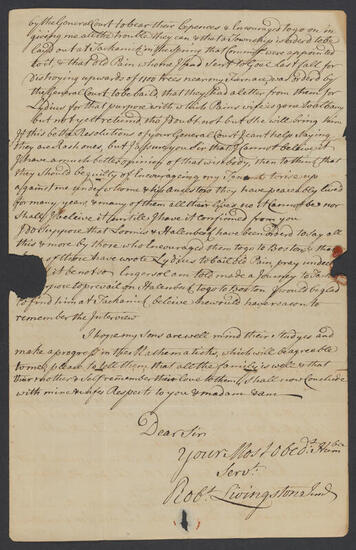 by the General Court to bear their Expences & Encouraged to go on in
giving me all the trouble they can & that a Township is orderd to be
laid out at Tackanick in the Spring that Committe were appointed
to it, & that old Pain whom I had sent to Goal last fall for
distroying upwards of 1100 trees near my furnace, was orderd by
the General Court to be baild that they had a letter from them for
Lydius for that purpose with which Pains wife is gone to albany
but not yet returnd tho I doubt not but she will bring him
If this be the Resolutions of your General Court I cant help saying
they are Rash ones but I assure you Sir that I Cannot believe it
I have a much better opinion of that wise body, then to think that
they should be guilty of Encourageing my Tenants to rise up
against me under whome & his ancestors they have peaceably lived
for many years & many of them all their lives no it Cannot be nor
Shall I beleive it untill I have it confirmed from you
I do Suppose that Loomis & Halenbeck have been orderd to say all
this & more by those who Encouraged them to go to Boston & that
of those have wrote Lydius to bail ble Pain, pray under
if it be not so Ingersol am told made a Journey to Tack
purpose to prevail on Halenbeck to go to Boston I would be glad
to find him at Tachanick I beleive he would have reason to
remember the Interview
I hope my Sons are well mind their Studyes and
make a progress in the Mathematicks, which will be agreeable
to me, please to tell them that all the family is well & that
their mother & Self remember their love to them, I shall now Conclude
with mine & wifes Respects to you & madam & am
Dear Sir
Your Most Obedt. Humble
Servt.
Robt. Livingston Junr